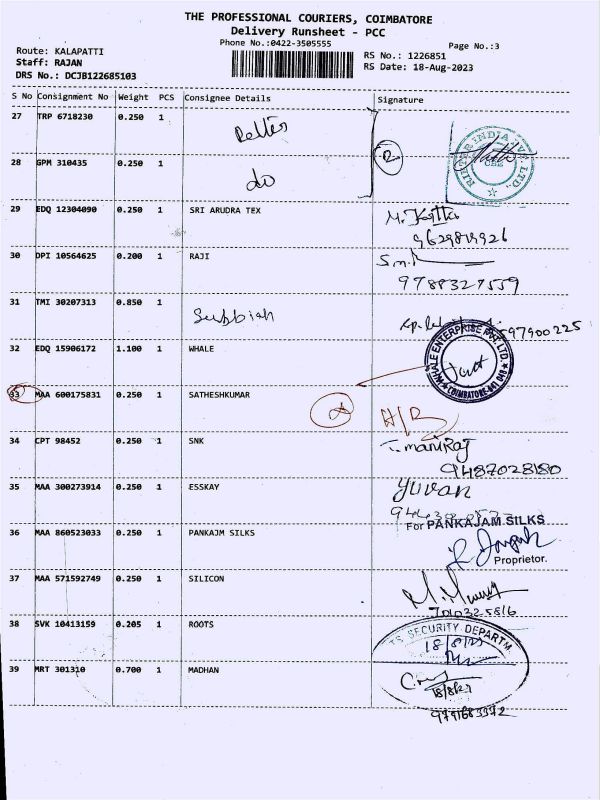 THE PROFESSIONAL COURIERS, COIMBATORE
Delivery Runsheet - PCC
Phone No.:0422-3505555
Page No.:3
Route: KALAPATTI
Staff: RAJAN
DRS No.: DCJB122685103
RS No.: 1226851
RS Date: 18-Aug-2023
S No Consignment No Weight PCS Consignee Details Signature
27 TRP 6718230 0.250 1
28 GPM 310435 0.250 1 do
29 EDQ 12304090 0.250 1 SRI ARUDRA TEX
30 DPI 10564625 0.200 1 RAJI
9788327559
31 TMI 30207313 0.850 1 Subbiah
597900225
32 EDQ 15906172 1.100 1 WHALE
WHALE ENTERPRISE PVT. LTD.
COIMBATORE-641 048
33 MAA 600175831 0.250 1 SATHESHKUMAR
34 CPT 98452 0.250 1 SNK T. maniRaj
9487028180
35 MAA 300273914 0.250 1 ESSKAY yuvan
For PANKAJAM SILKS
36 MAA 860523033 0.250 1 PANKAJM SILKS
Proprietor.
37 MAA 571592749 0.250 1 SILICON
38 SVK 10413159 0.205 1 ROOTS
SECURITY DEPARTM
18/8/23
39 MRT 301310 0.700 1 MADHAN
18/8/23